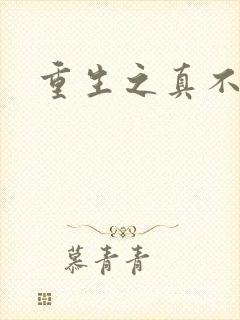 重生之真不
慕青青